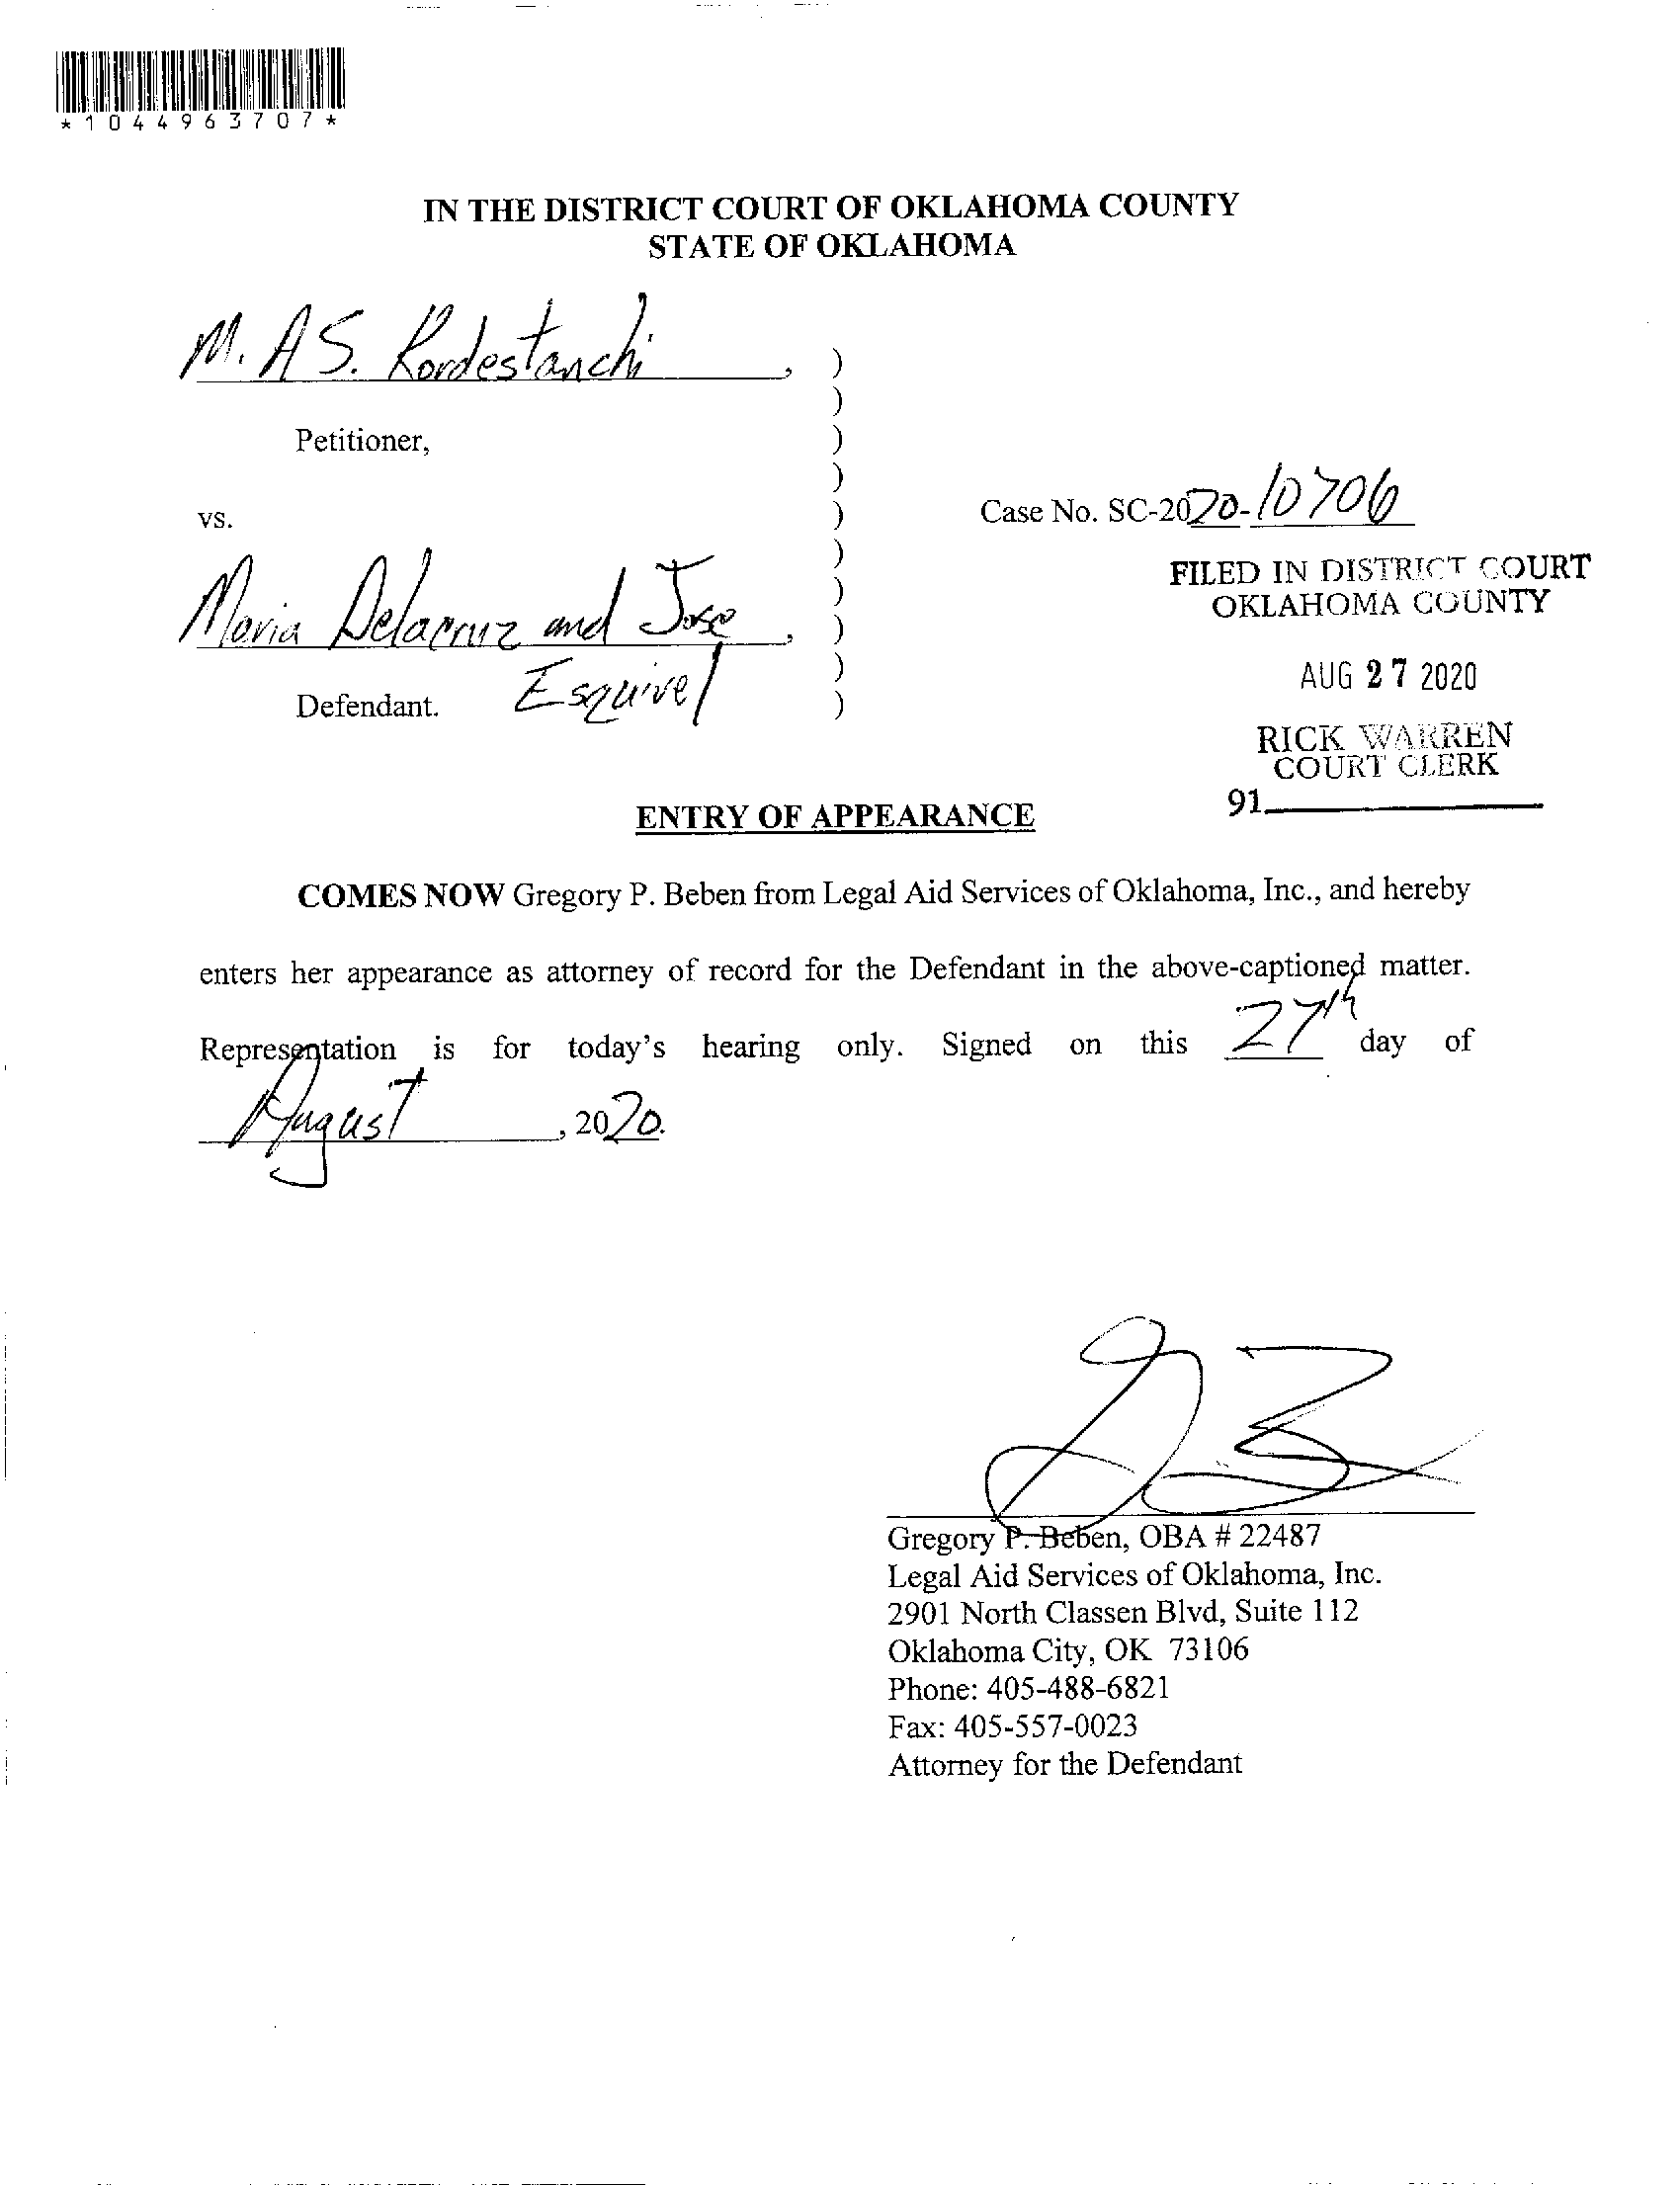 *1044963707*
IN THE DISTRICT COURT OF OKLAHOMA COUNTY
STATE OF OKLAHOMA
M. A S. Kordestanchi , )
)
Petitioner, )
)
vs. )
Case No. SC-2020-10706
)
)
Maria Delacruz and Jose , )
Esquivel )
Defendant. )
FILED IN DISTRICT COURT
OKLAHOMA COUNTY
AUG 27 2020
RICK WARREN
COURT CLERK
91
ENTRY OF APPEARANCE
COMES NOW Gregory P. Beben from Legal Aid Services of Oklahoma, Inc., and hereby
enters her appearance as attorney of record for the Defendant in the above-captioned matter.
Representation is for today's hearing only. Signed on this 27th day of
August , 2020.
Gregory P. Beben, OBA # 22487
Legal Aid Services of Oklahoma, Inc.
2901 North Classen Blvd, Suite 112
Oklahoma City, OK 73106
Phone: 405-488-6821
Fax: 405-557-0023
Attorney for the Defendant